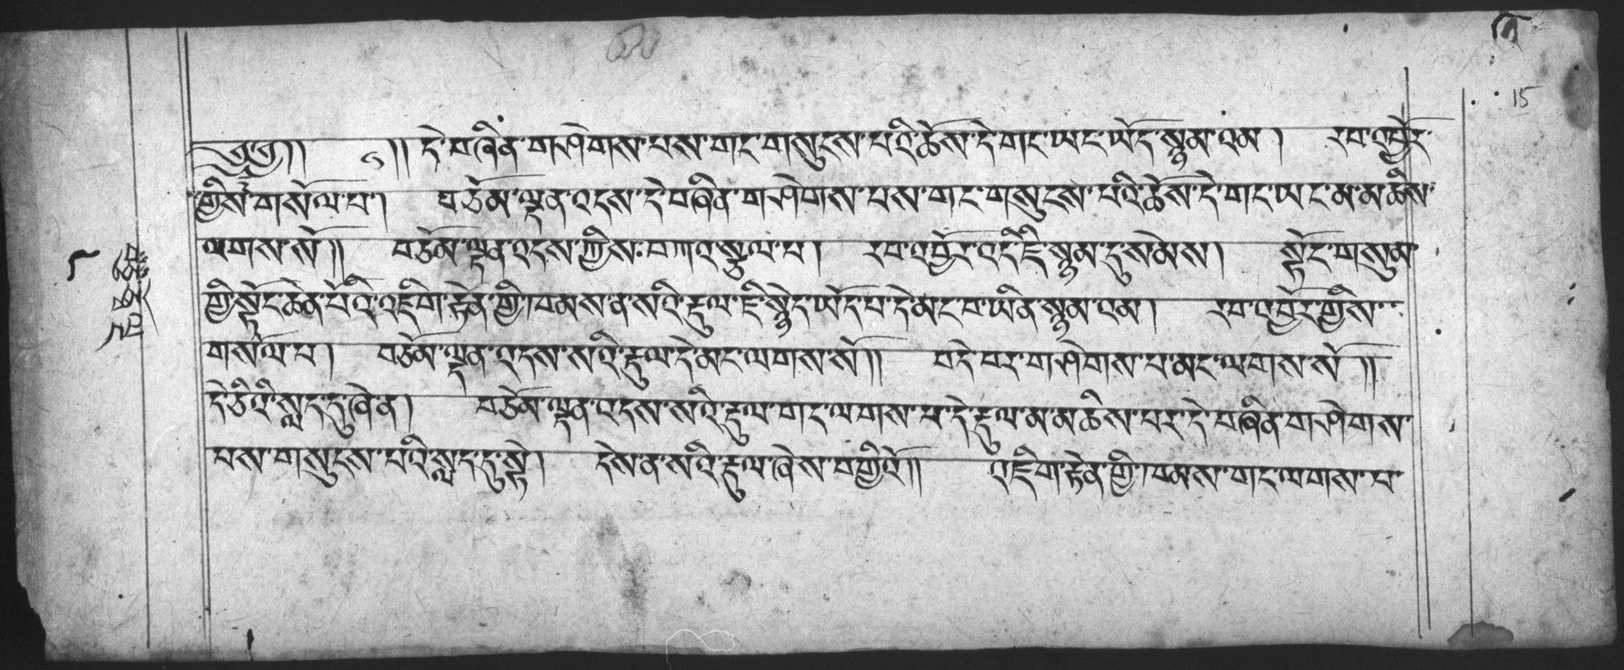 ༄༅།། ༡།། དེ་བཞིན་གཤེགས་པས་གང་གསུངས་པའི་ཆོས་དེ་གང་ཡང་ཡོད་སྙམ་འམ། རབ་འབྱོར་
གྱིས་གསོལ་པ། བཅོམ་ལྡན་འདས་དེ་བཞིན་གཤེགས་པས་གང་གསུངས་པའི་ཆོས་དེ་གང་ཡང་མ་མཆིས་
ལགས་སོ།། བཅོམ་ལྡན་འདས་ཀྱིས་བཀའ་སྩལ་པ། རབ་འབྱོར་འདི་ཇི་སྙམ་དུ་སེམས། སྟོང་གསུམ་
གྱི་སྟོང་ཆེན་པོའི་འཇིག་རྟེན་གྱི་ཁམས་ན་སའི་རྡུལ་ཇི་སྙེད་ཡོད་པ་དེ་མང་བ་ཡིན་སྙམ་འམ། རབ་འབྱོར་གྱིས་
གསོལ་པ། བཅོམ་ལྡན་འདས་སའི་རྡུལ་དེ་མང་ལགས་སོ།། བདེ་བར་གཤེགས་པ་མང་ལགས་སོ།།
དེ་ཅིའི་སླད་དུ་ཞེ་ན། བཅོམ་ལྡན་འདས་སའི་རྡུལ་གང་ལགས་པ་དེ་རྡུལ་མ་མཆིས་པར་དེ་བཞིན་གཤེགས་
པས་གསུངས་པའི་སླད་དུ་སྟེ། དེས་ན་སའི་རྡུལ་ཞེས་བགྱིའོ།། འཇིག་རྟེན་གྱི་ཁམས་གང་ལགས་པ་
15